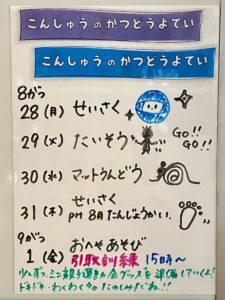 こんしゅうのかつどうよてい
こんしゅうのかつどうよてい
8がつ
28(月) せいさく
29(火) たいそう GO!! GO!!
30(水) マットうんどう
31(木) せいさく
PM 8月たんじょうかい。
9がつ
1(金) おへそあそび
引取訓練 15時~
少しずつミニ親子運動会グッズを準備していくよ!
ドキドキ・わくわく♡たのしみだね!!